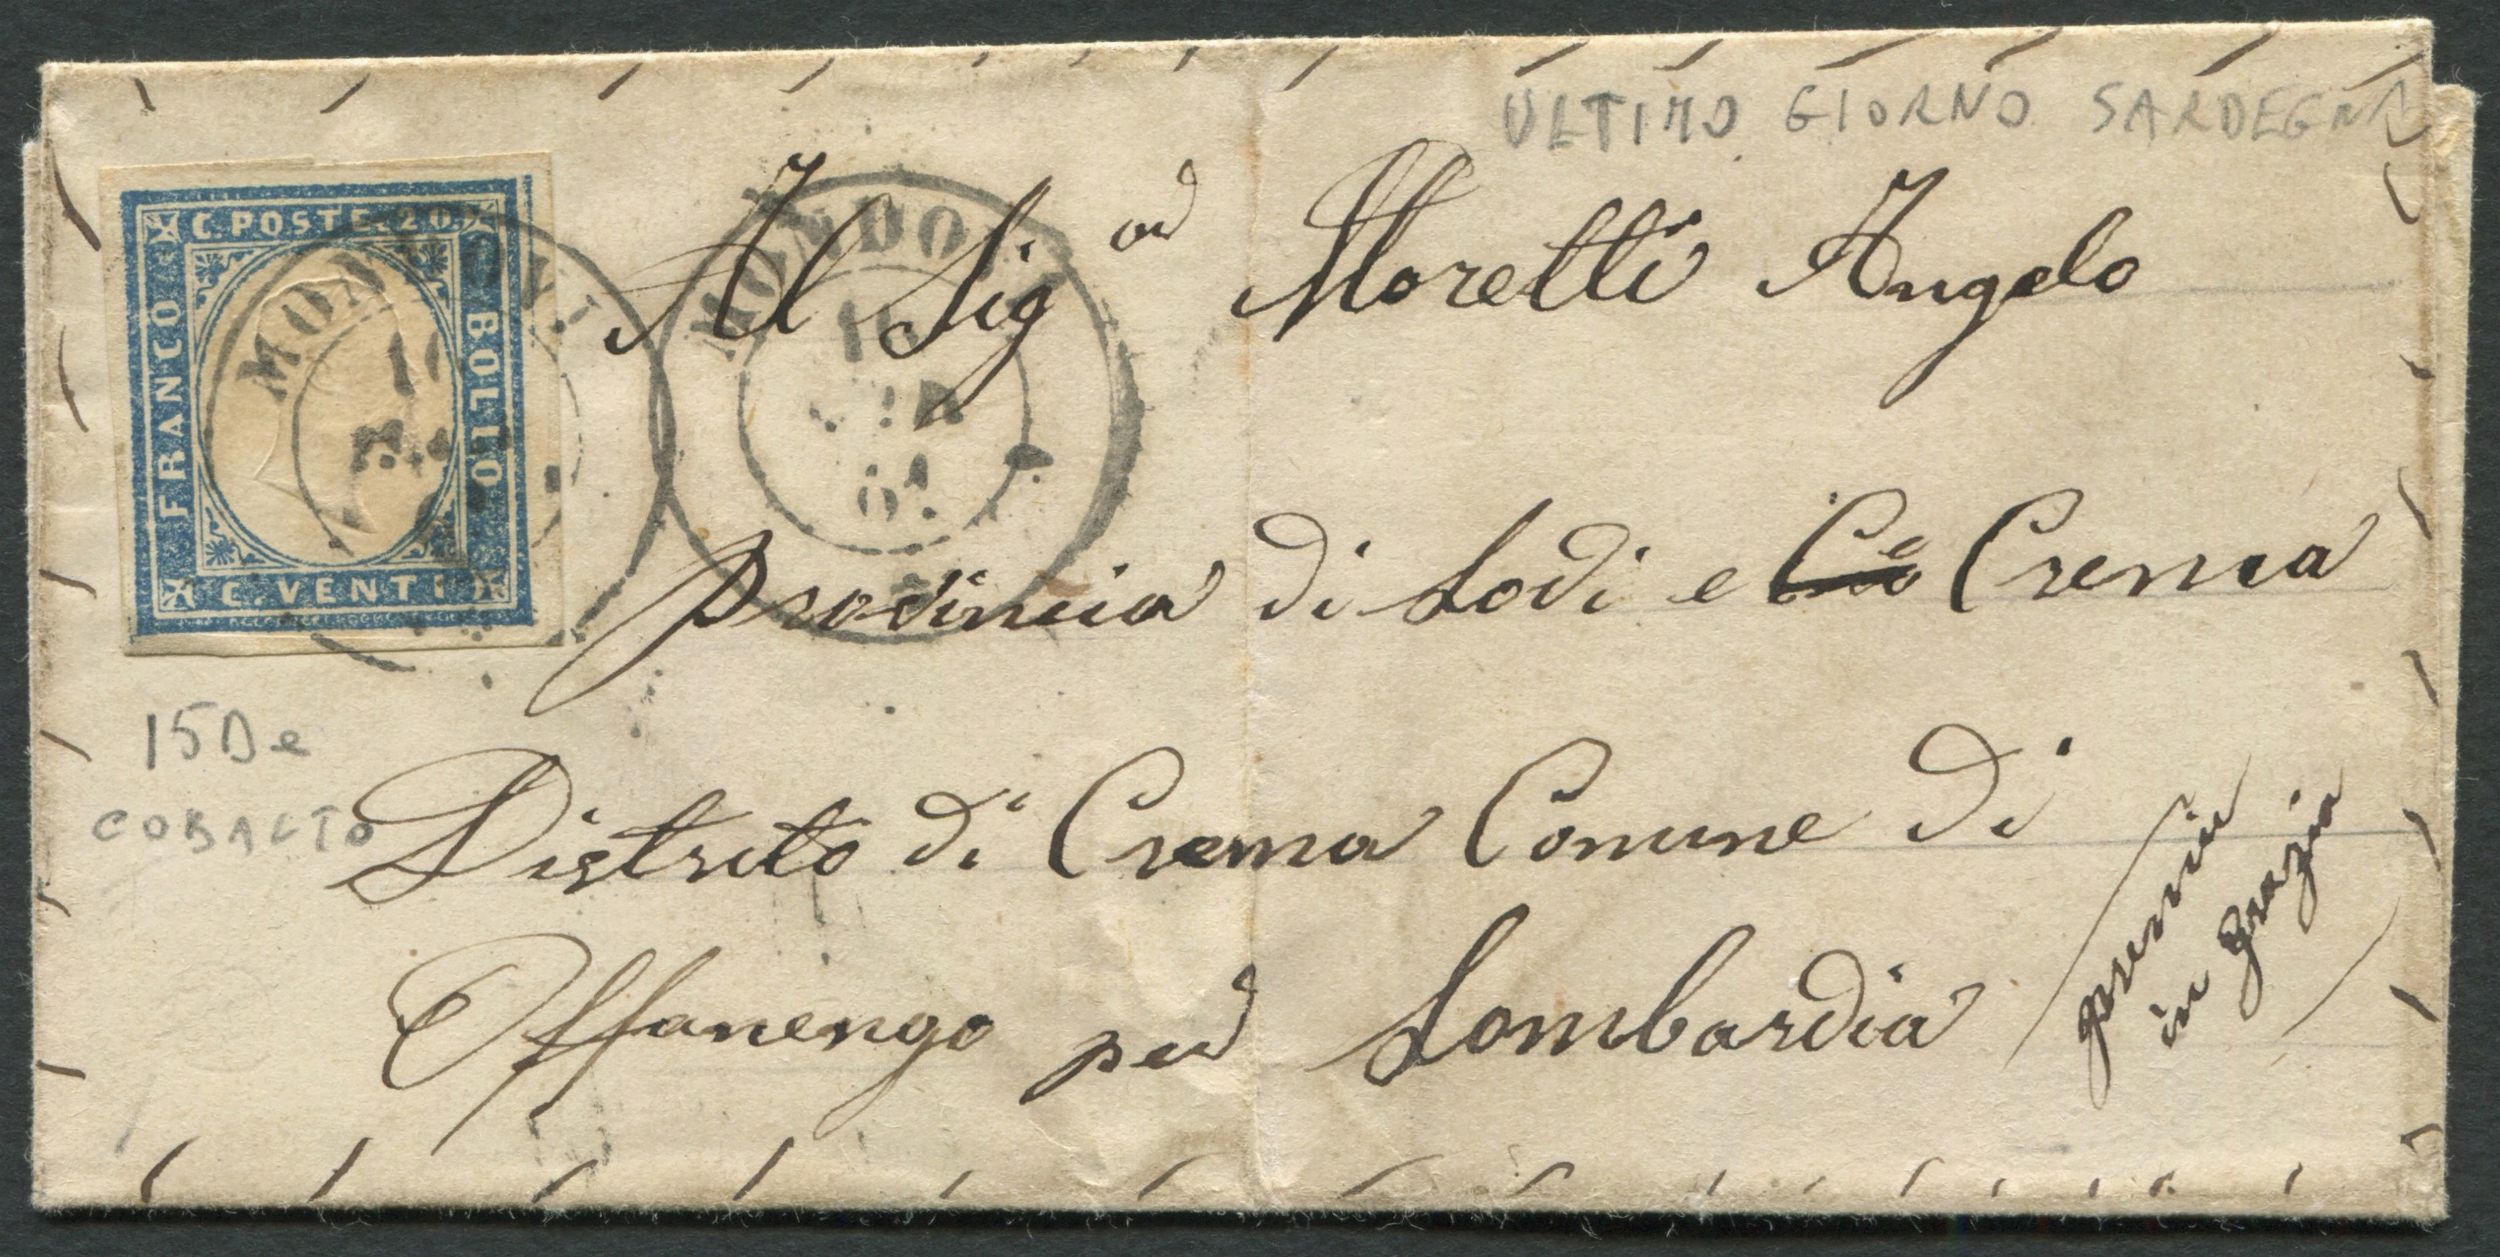 ULTIMO GIORNO SARDEGNA
C. POSTE. 20
FRANCO
BOLLO
C. VENTI
MONDOVI
16
MONDOVI
16
MAR
61
Al Sig.or Moretti Angelo
Provincia di Lodi e Crema
Distreto di Crema Comune di
Offanengo per Lombardia
in grazia
15De
COBALTO